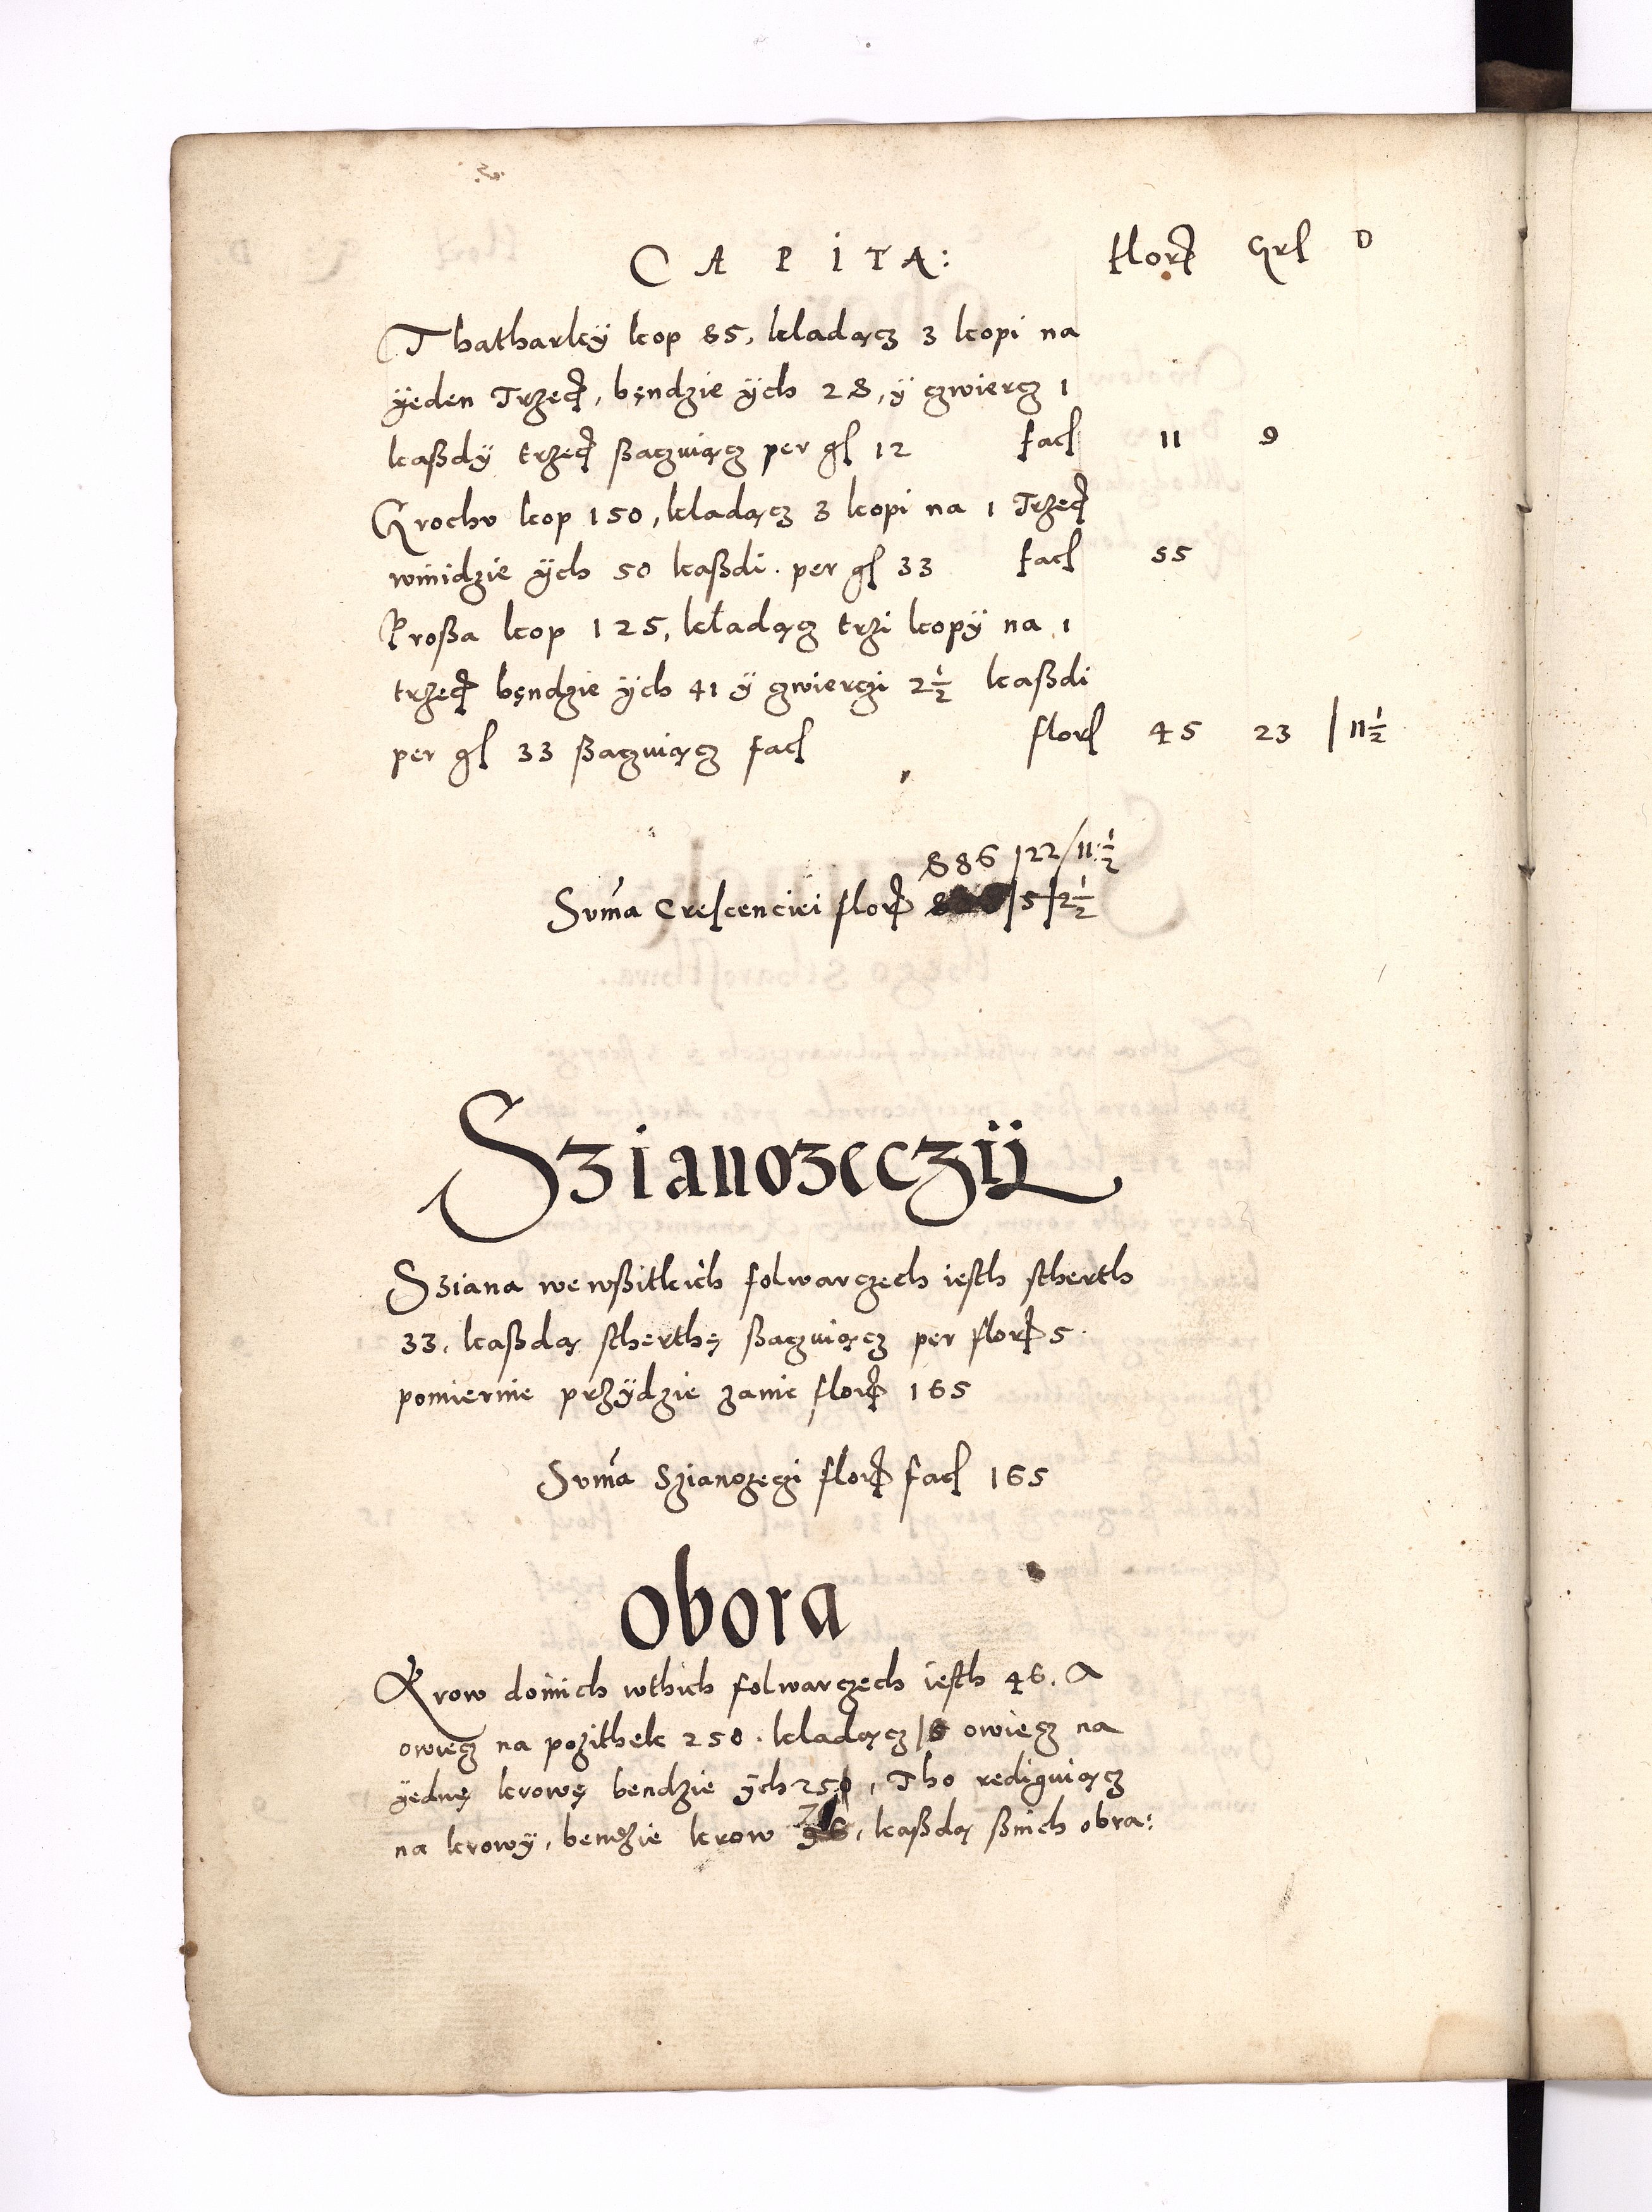 CAPITA: Flor Grſ D
Thatharky kop 85, kladącz 3 kopi na
ÿeden Trzeć, bęndzie ÿch 28, ÿ czwiercz 1
kaßdÿ trzeć ßaczuiącz per gſ 12 facſ 11 9
Grochv kop 150, kladącz 3 kopi na 1 Trzeć
winidzie ÿch 50 kaßdi. per gſ 33 facſ 55
Proßa kop 125, kładącz trzi kopÿ na 1
trzeć bęndzie ÿch 41 ÿ czwierczi 2½ kaßdi
per gſ 33 ßaczuiącz facſ florſ 45 23 / 11½
886 / 22 / 11½
Svma Creſcenciei flor / 5 / 2½
Szianozeczij
Sziana we wßitkich folwarczech ieſth ſtherth
33. kaßdą ſtherthę ßaczuiącz per flor 5.
pomiernie przÿdzie zanie flor 165
Svma Szianozeczi flor facſ 165
Obora
Krow doinich wthich folwarczech ieſth 46. A
owiecz na pozithek 250. kladącz / 6 owiecz na
ÿednę krowę bendzie ÿch 250, Tho rediguiącz
na krowÿ, bendzie krow, kaßdą ßnich obra: